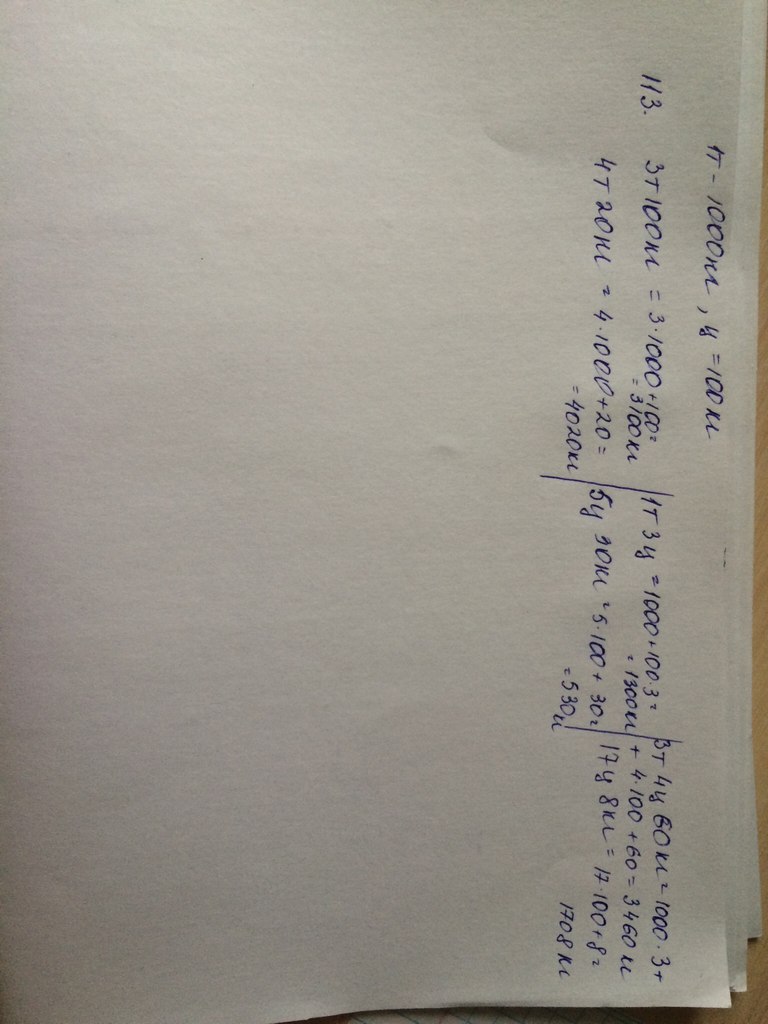 1т - 1000кг, ц = 100кг
113. 3т 100кг = 3·1000+100= | 1т 3ц = 1000+100·3= | 3т 4ц 60кг = 1000·3+
= 3100кг | = 1300кг | + 4·100+60 = 3460кг
4т 20кг = 4·1000+20= | 5ц 30кг = 5·100+30= | 17ц 8кг = 17·100+8=
= 4020кг | = 530кг | 1708кг